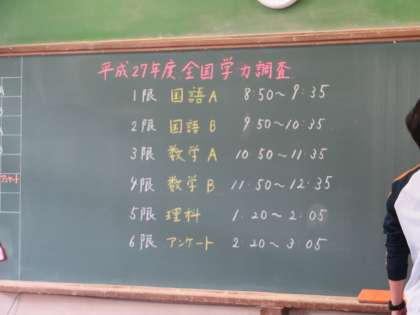 平成27年度全国学力調査
1限 国語A 8:50～9:35
2限 国語B 9:50～10:35
3限 数学A 10:50～11:35
4限 数学B 11:50～12:35
5限 理科 1:20～2:05
6限 アンケート 2:20～3:05
アンケート